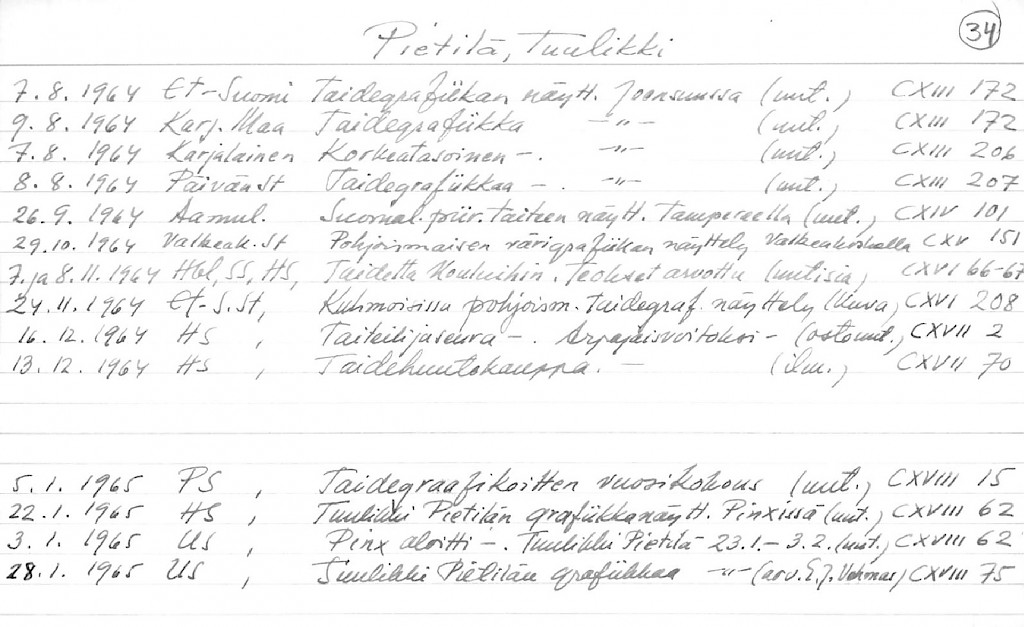 34
Pietilä, Tuulikki
7.8.1964 Et-Suomi Taidegrafiikan näytt. Joensuussa (uut.) CXIII 172
9.8.1964 Karj. Maa Taidegrafiikka -"- (uut.) CXIII 172
7.8.1964 Karjalainen Korkeatasoinen -. -"- (uut.) CXIII 206
8.8.1964 Päivän St Taidegrafiikkaa -. -"- (uut.) CXIII 207
26.9.1964 Aamul. Suomal. piir. taiteen näytt. Tampereella (uut.) CXIV 101
29.10.1964 Valkeak. St Pohjoismaisen värigrafiikan näyttely Valkeakoskella CXV 151
7. ja 8.11.1964 Hbl, SS, HS, Taidetta kouluihin. Teokset arvottu (uutisia) CXVI 66-67
24.11.1964 Et-S.St, Kuhmoisissa pohjoism. taidegraf. näyttely (kuva) CXVI 208
16.12.1964 HS , Taiteilijaseura -. Arpajaisvoitoksi - (ostouut.) CXVII 2
13.12.1964 HS , Taidehuutokauppa. - (ilm.) CXVII 70
5.1.1965 PS , Taidegraafikoitten vuosikokous (uut.) CXVIII 15
22.1.1965 HS , Tuulikki Pietilän grafiikkanäytt. Pinxissä (uut.) CXVIII 62
3.1.1965 US , Pinx aloitti -. Tuulikki Pietilä 23.1.-3.2. (uut.) CXVIII 62
28.1.1965 US , Tuulikki Pietilän grafiikkaa -"- (arv. E.J. Vehmas) CXVIII 75